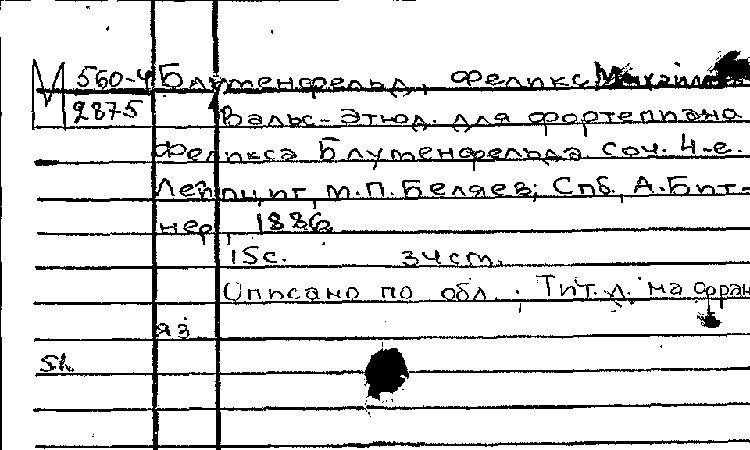 М 560-4 Блуменфельд, Феликс Михайлович
2875 Вальс-этюд. для фортепиано
Феликса Блуменфельда соч. 4-е.
Лейпциг, М.П. Беляев; Спб., А. Бит-
нер, 1886
15с. 34cm.
Описано по обл. . Тит. л. на фран
яз